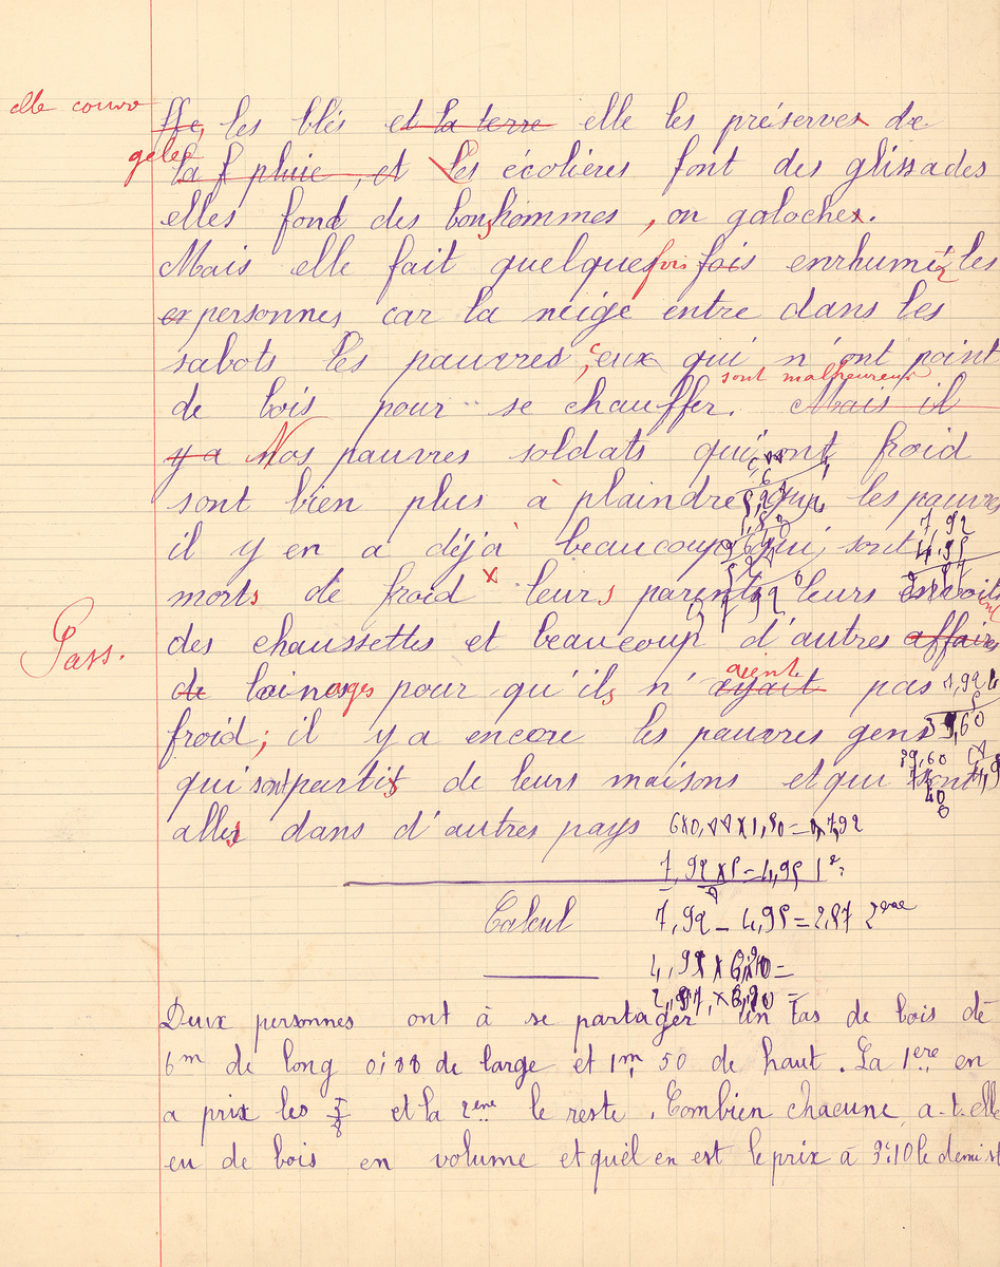 elle couvre
les blés et la terre elle les préserves de
gelée
la pluie, et Les écolières font des glissades
elles fond des bonshommes, on galoches.
Mais elle fait quelquefois fois enrhumér les
personnes car la neige entre dans les
sabots les pauvres ceux qui n'ont point
sont malheureux
de bois pour se chauffer. Mais il
y a Nos pauvres soldats qui ont froid
sont bien plus à plaindre que les pauvres
il y en a déjà beaucoup qui sont
7,92
4,95
morts de froid x leurs parents leurs envoient
Pass.
des chaussettes et beaucoup d'autres affaires
aient
de lainages pour qu'ils n'ayait pas
froid; il y a encore les pauvres gens
39,60
qui sont partis de leurs maisons et qui sont
40
0
allés dans d'autres pays
7,92 x 5 = 4,95 1e
Calcul 7,92 - 4,95 = 2,97 2eme
Deux personnes ont à se partager un tas de bois de
6m de long 0,88 de large et 1m, 50 de haut. La 1ere en
a prix les 5/8 et la 2eme le reste. Combien chacune a-t-elle
eu de bois en volume et quel en est le prix à 3,10 le demi st